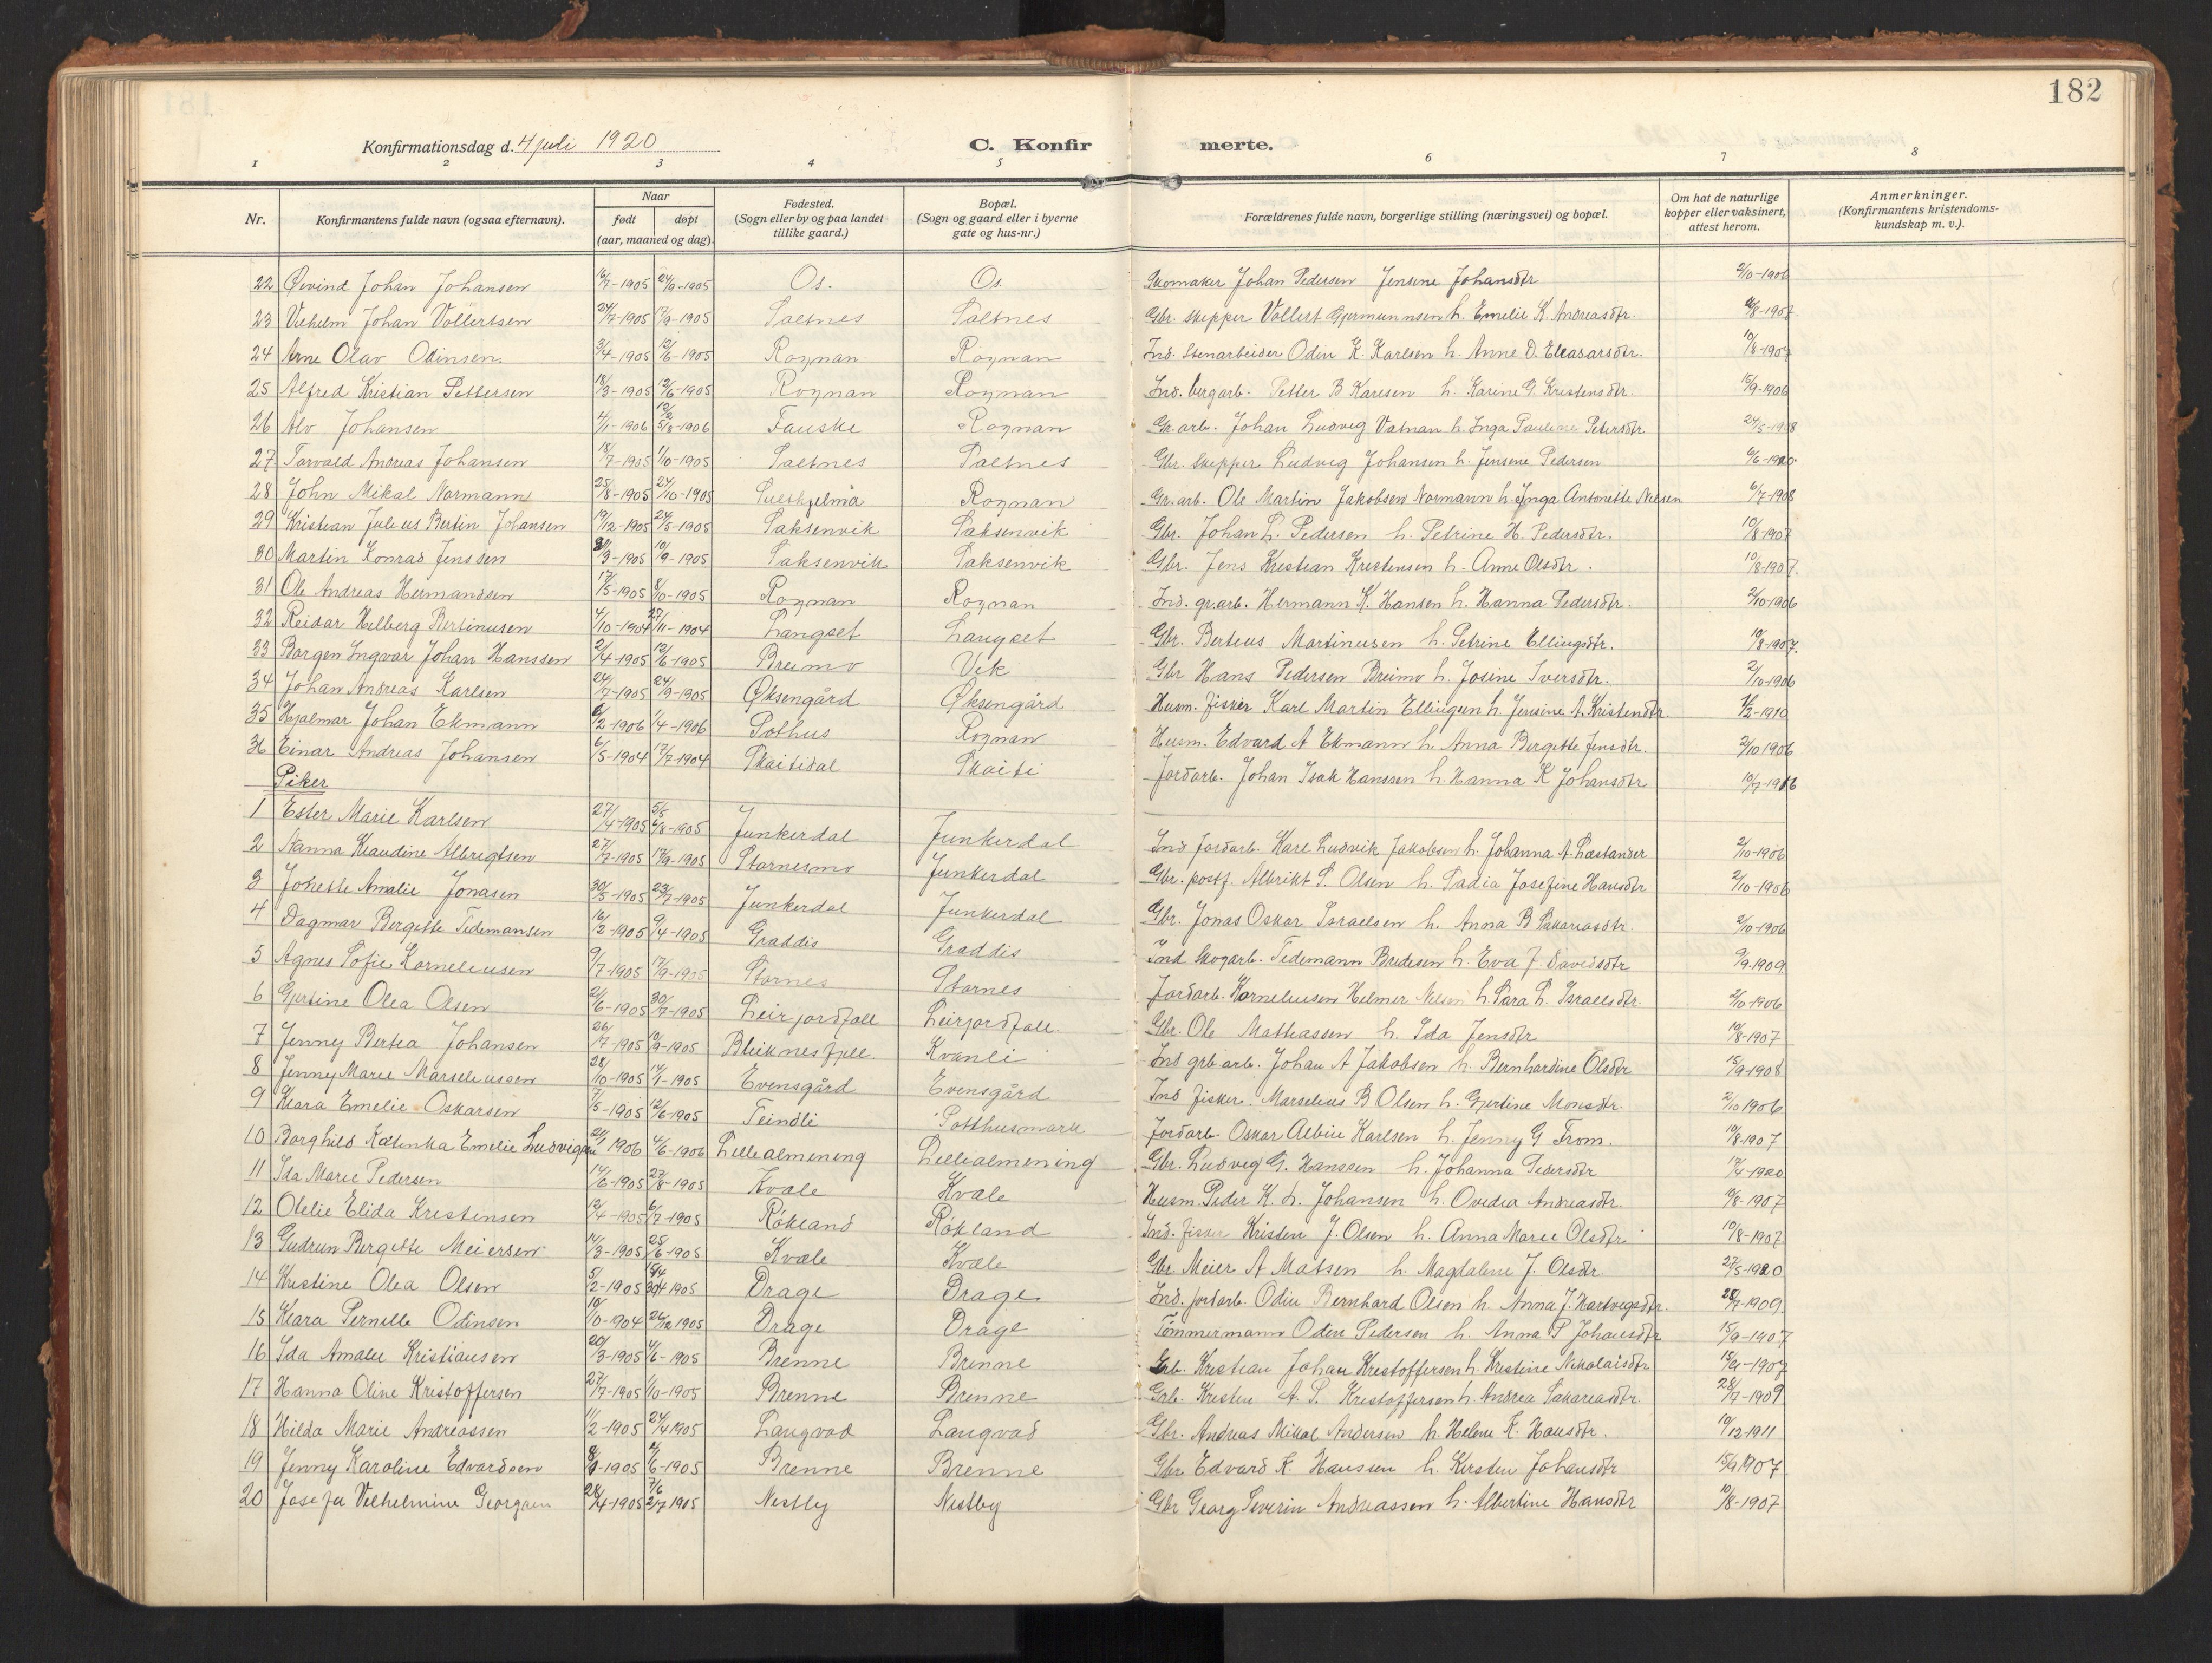 182
Konfirmationsdag d. 4 juli 1920
C. Konfirmerte.
1 2 3 4 5 6 7 8
Nr. Konfirmantens fulde navn (ogsaa efternavn). Naar født døpt (aar, maaned og dag). Fødested. (Sogn eller by og paa landet tillike gaard.) Bopæl. (Sogn og gaard eller i byerne gate og hus-nr.) Forældrenes fulde navn, borgerlige stilling (næringsvei) og bopæl. Om hat de naturlige kopper eller vaksinert, attest herom. Anmerkninger. (Konfirmantens kristendomskundskap m. v.).
22 Øivind Johan Johansen 16/7-1905 24/9-1905 Os. Os. Skomaker Johan Pedersen Jensine Johansdtr 2/10-1906
23 Vilhelm Johan Vollertsen 24/7-1905 17/9-1905 Saltnes Saltnes Gbr. skipper Vollert Gjermunnsen h. Emelie K. Andreasdtr. 10/8-1907
24 Arne Olav Odinsen 3/4-1905 12/6-1905 Rognan Rognan Ind. Stenarbeider Odin K. Karlsen h. Anne D. Eleasarsdtr. 10/8-1907
25 Alfred Kristian Pettersen 18/3-1905 12/6-1905 Rognan Rognan Ind. bergarb. Petter B Karlsen h. Karine G. Kristensdtr. 15/9-1906
26 Alv Johansen 4/1-1906 5/8-1906 Fauske Rognan Gr. arb. Johan Ludvig Vatnan h. Inga Pauline Petersdtr 24/5-1908
27 Torvald Andreas Johansen 18/7-1905 1/10-1905 Saltnes Saltnes Gbr. Skipper Ludvig Johansen h. Jensine Pedersen 6/6-1920
28 John Mikal Normann 25/8-1905 24/10-1905 Sulithjelma Rognan Gr. arb. Ole Martin Jakobsen Normann h. Inga Antonette Nilsen 6/7-1908
29 Kristian Julius Bertin Johansen 19/12-1905 24/5-1905 Saksenvik Saksenvik Gbr. Johan L. Pedersen h. Petrine H. Pedersdtr. 10/8-1907
30 Martin Konrad Jenssen /3-1905 10/9-1905 Saksenvik Saksenvik Gbr. Jens Kristian Kristensen h. Anne Olsdtr. 10/8-1907.
31 Ole Andreas Hermandsen 17/5-1905 8/10-1905 Rognan Rognan Ind. gr. arb. Hermann K. Hansen h. Hanna Pedersdtr. 2/10-1906
32 Reidar Hilberg Bertinusen 4/10-1904 27/11-1904 Langset Langset Gbr. Bertius Martinusen h. Petrine Ellingsdtr. 10/8-1907.
33 Borgen Ingvar Johan Hanssen 2/4-1905 12/6-1905 Breimo Vik Gbr Hans Pedersen Breimo h. Josine Iversdtr. 2/10-1906
34 Johan Andreas Karlsen 24/7-1905 24/9-1905 Øksengård Øksengård Husm. fisker Karl Martin Ellingsen h. Jensine A. Kristendtr. /2-1910
35 Hjalmar Johan Ekmann 6/2-1906 1/4-1906 Pothus Rognan Husm. Edvard A Ekmann h. Anna Bergitte Jensdtr. 2/10 1906
36 Einar Andreas Johansen 6/5-1904 17/7-1904 Skaitidal Skaiti Jordarb. Johan Isak Hanssen h. Hanna K Johansdtr 10/7-1916
Piker
1 Ester Marie Karlsen 27/4-1905 6/8-1905 Junkerdal Junkerdal Ind Jordarb. Karl Ludvik Jakobsen h. Johanna A. Læstander 2/10-1906
2 Hanna Klaudine Albrigtsen 27/7-1905 17/9-1905 Stornesmo Junkerdal Gbr. postf. Albrikt S. Olsen h. Sadia Josefine Hansdtr 2/10-1906
3 Jonette Amalie Jonasen 30/5-1905 23/7-1905 Junkerdal Junkerdal Gbr. Jonas Oskar Israelsen h. Anna B Sakariasdtr. 2/10-1906
4 Dagmar Bergitte Tidemansen 16/2-1905 9/4-1905 Graddis Graddis Ind Skogarb. Tidemann Bredesen h. Eva J. Davidsdtr 9/9-1909
5 Agnes Sofie Korneliusen 9/7-1905 17/9-1905 Stornes Stornes Jordarb. Korneliusen Helmer Nilsen h. Sara L. Israelsdtr. 2/10-1906
6 Gjertine Olea Olsen 21/6-1905 30/7-1905 Leirjordfall Leirjordfall. Gbr. Ole Mathiassen h. Ida Jensdtr 10/8-1907
7 Jenny Bertea Johansen 26/7-1905 10/9-1905 Bleiknesfjell. Kvanli Ind grb arb. Johan A Jakobsen h. Bernhardine Olsdtr 15/9-1908
8 Jenny Marie Marseliussen 28/10-1905 14/1-1905 Evensgård Evensgård Ind fisker. Marselius B Olsen h. Gjertine Monsdtr. 2/10 1906
9 Klara Emelie Oskarsen 7/5-1905 12/6-1905 Teindli Potthusmark Jordarb. Oskar Albin Karlsen h. Jenny G From. 10/8-1907
10 Borghild Katinka Emelie Ludvigsen 21/1 1906 4/6-1906 Lillealmening Lillealmening Gbr. Ludvig G. Hanssen h. Johanna Pedersdtr /4-1920
11 Ida Marie Pedersen 14/6-1905 27/8-1905 Kvæle Kvæle Husm. Peder K. L. Johansen h. Ovedia Andreasdtr. 10/8-1907
12 Otelie Elida Kristensen 12/4-1905 6/7-1905 Røkland Røkland Ind. fisker Kristen J. Olsen h. Anna Marie Olsdtr. 10/8-1907
13 Gudrun Bergitte Meiersen 14/3-1905 25/6-1905 Kvæle Kvæle Gbr Meier A Matsen h. Magdalene J. Olsdtr. 27/5-1920
14 Kristine Olea Olsen 5/2-1905 30/4 1905 Drage Drage Ind. jordarb. Odin Bernhard Olsen h. Anna J. Hartvigsdtr. 28/7-1909
15 Klara Pernille Odinsen 10/10-1904 26/12 1905 Drage Drage Tømmermann Odin Pedersen h. Anna P Johansdtr 15/9-1907
16 Ida Amalie Kristiansen 20/3-1905 4/6-1905 Brenne Brenne Grb. Kristian Johan Kristoffersen h. Kristine Nikolaisdtr 15/9-1907
17 Hanna Oline Kristoffersen 27/7-1905 1/10-1905 Brenne Brenne Grb. Kristen A. P. Kristoffersen h. Andrea Sakariasdtr. 28/7-1909
18 Hilda Marie Andreassen 11/2-1905 24/4 1905 Langvad Langvad Gbr. Andreas Mikal Andersen h. Helene K. Hansdtr. 10/12-1911
19 Jenny Karoline Edvardsen -1905 /6-1905 Brenne Brenne Gbr Edvard K. Hanssen h. Kirsten Johansdtr 15/9 1907
20 Josefa Vilhelmine Georgsen 28/4-1905 2/7 1905 Nestby Nestby Gbr Georg Severin Andreassen h. Albertine Hansdtr 10/8-1907